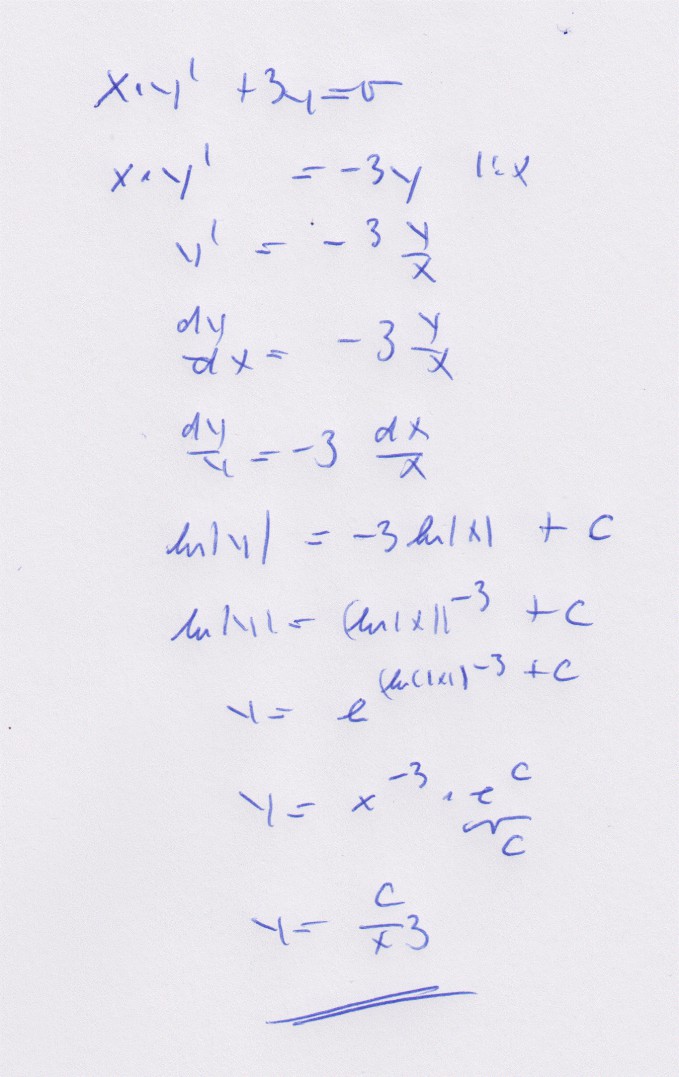 x·y' +3y=0
x·y' = -3y |:x
y' = -3 y/x
dy/dx = -3 y/x
dy/y = -3 dx/x
ln|y| = -3 ln|x| + C
ln|y| = (ln|x|)^-3 + C
y = e^((ln|x|)^-3 + C)
y = x^-3 · e^C
C
y = C/x3